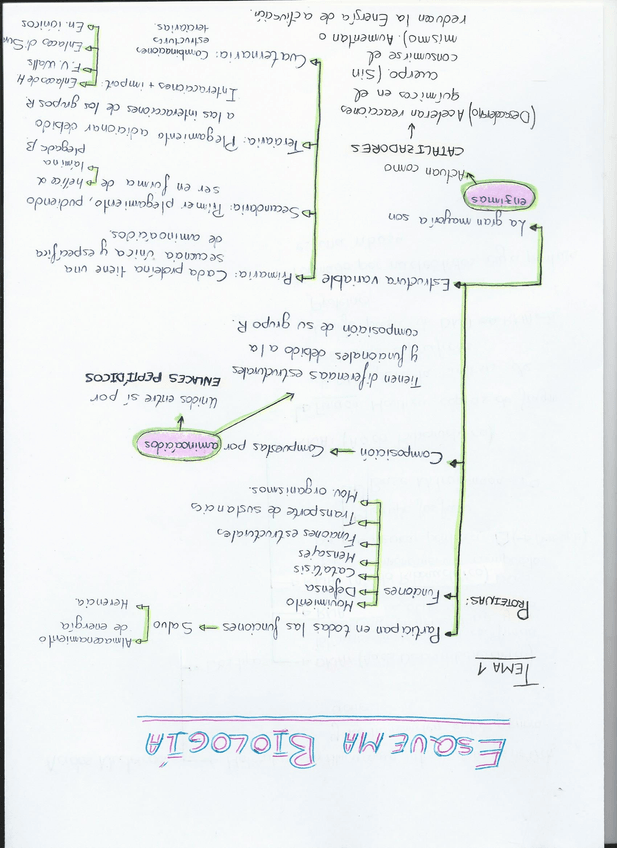 ESQUEMA BIOLOGÍA
TEMA 1
PROTEINAS:
Participan en todas las funciones → Salvo
Almacenamiento
de energía
Herencia
Funciones
Movimiento
Defensa
Catálisis
Mensajes
Funciones estructurales
Transporte de sustancias
Mov. organismos.
Composición → Compuestas por aminoácidos
Unidos entre sí por
ENLACES PEPTÍDICOS
Tienen diferencias estructurales
y funcionales debido a la
composición de su grupo R.
Estructura variable
Primaria: Cada proteína tiene una
secuencia única y específica
de aminoácidos.
Secundaria: Primer plegamiento, pudiendo
ser en forma de hélice α
lámina
plegada β
Terciaria: Plegamiento adicionar debido
a las interacciones de los grupos R
Interacciones + import:
Enlaces de H
F.V. Walls
Enlaces d Sun
En. iónicos
Cuaternaria: Combinaciones
estructurs
terciarias.
La gran mayoría son
enzimas
Actuan como
CATALIZADORES
(Descaderno) Aceleran reacciones
químicas en el
cuerpo. (Sin
consumirse el
mismo). Aumentan o
reducen la Energía de activación.